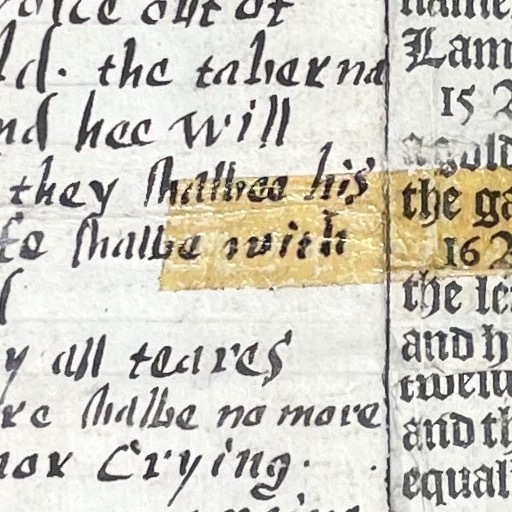 voice out of
ld. the taberna
nd hee will
they shalbee his
fe shalbe with
y all teares
re shalbe no more
nor Crying.
Lam
15 A
a gold
the ga
16 A
the le
and h
twelu
and th
equal